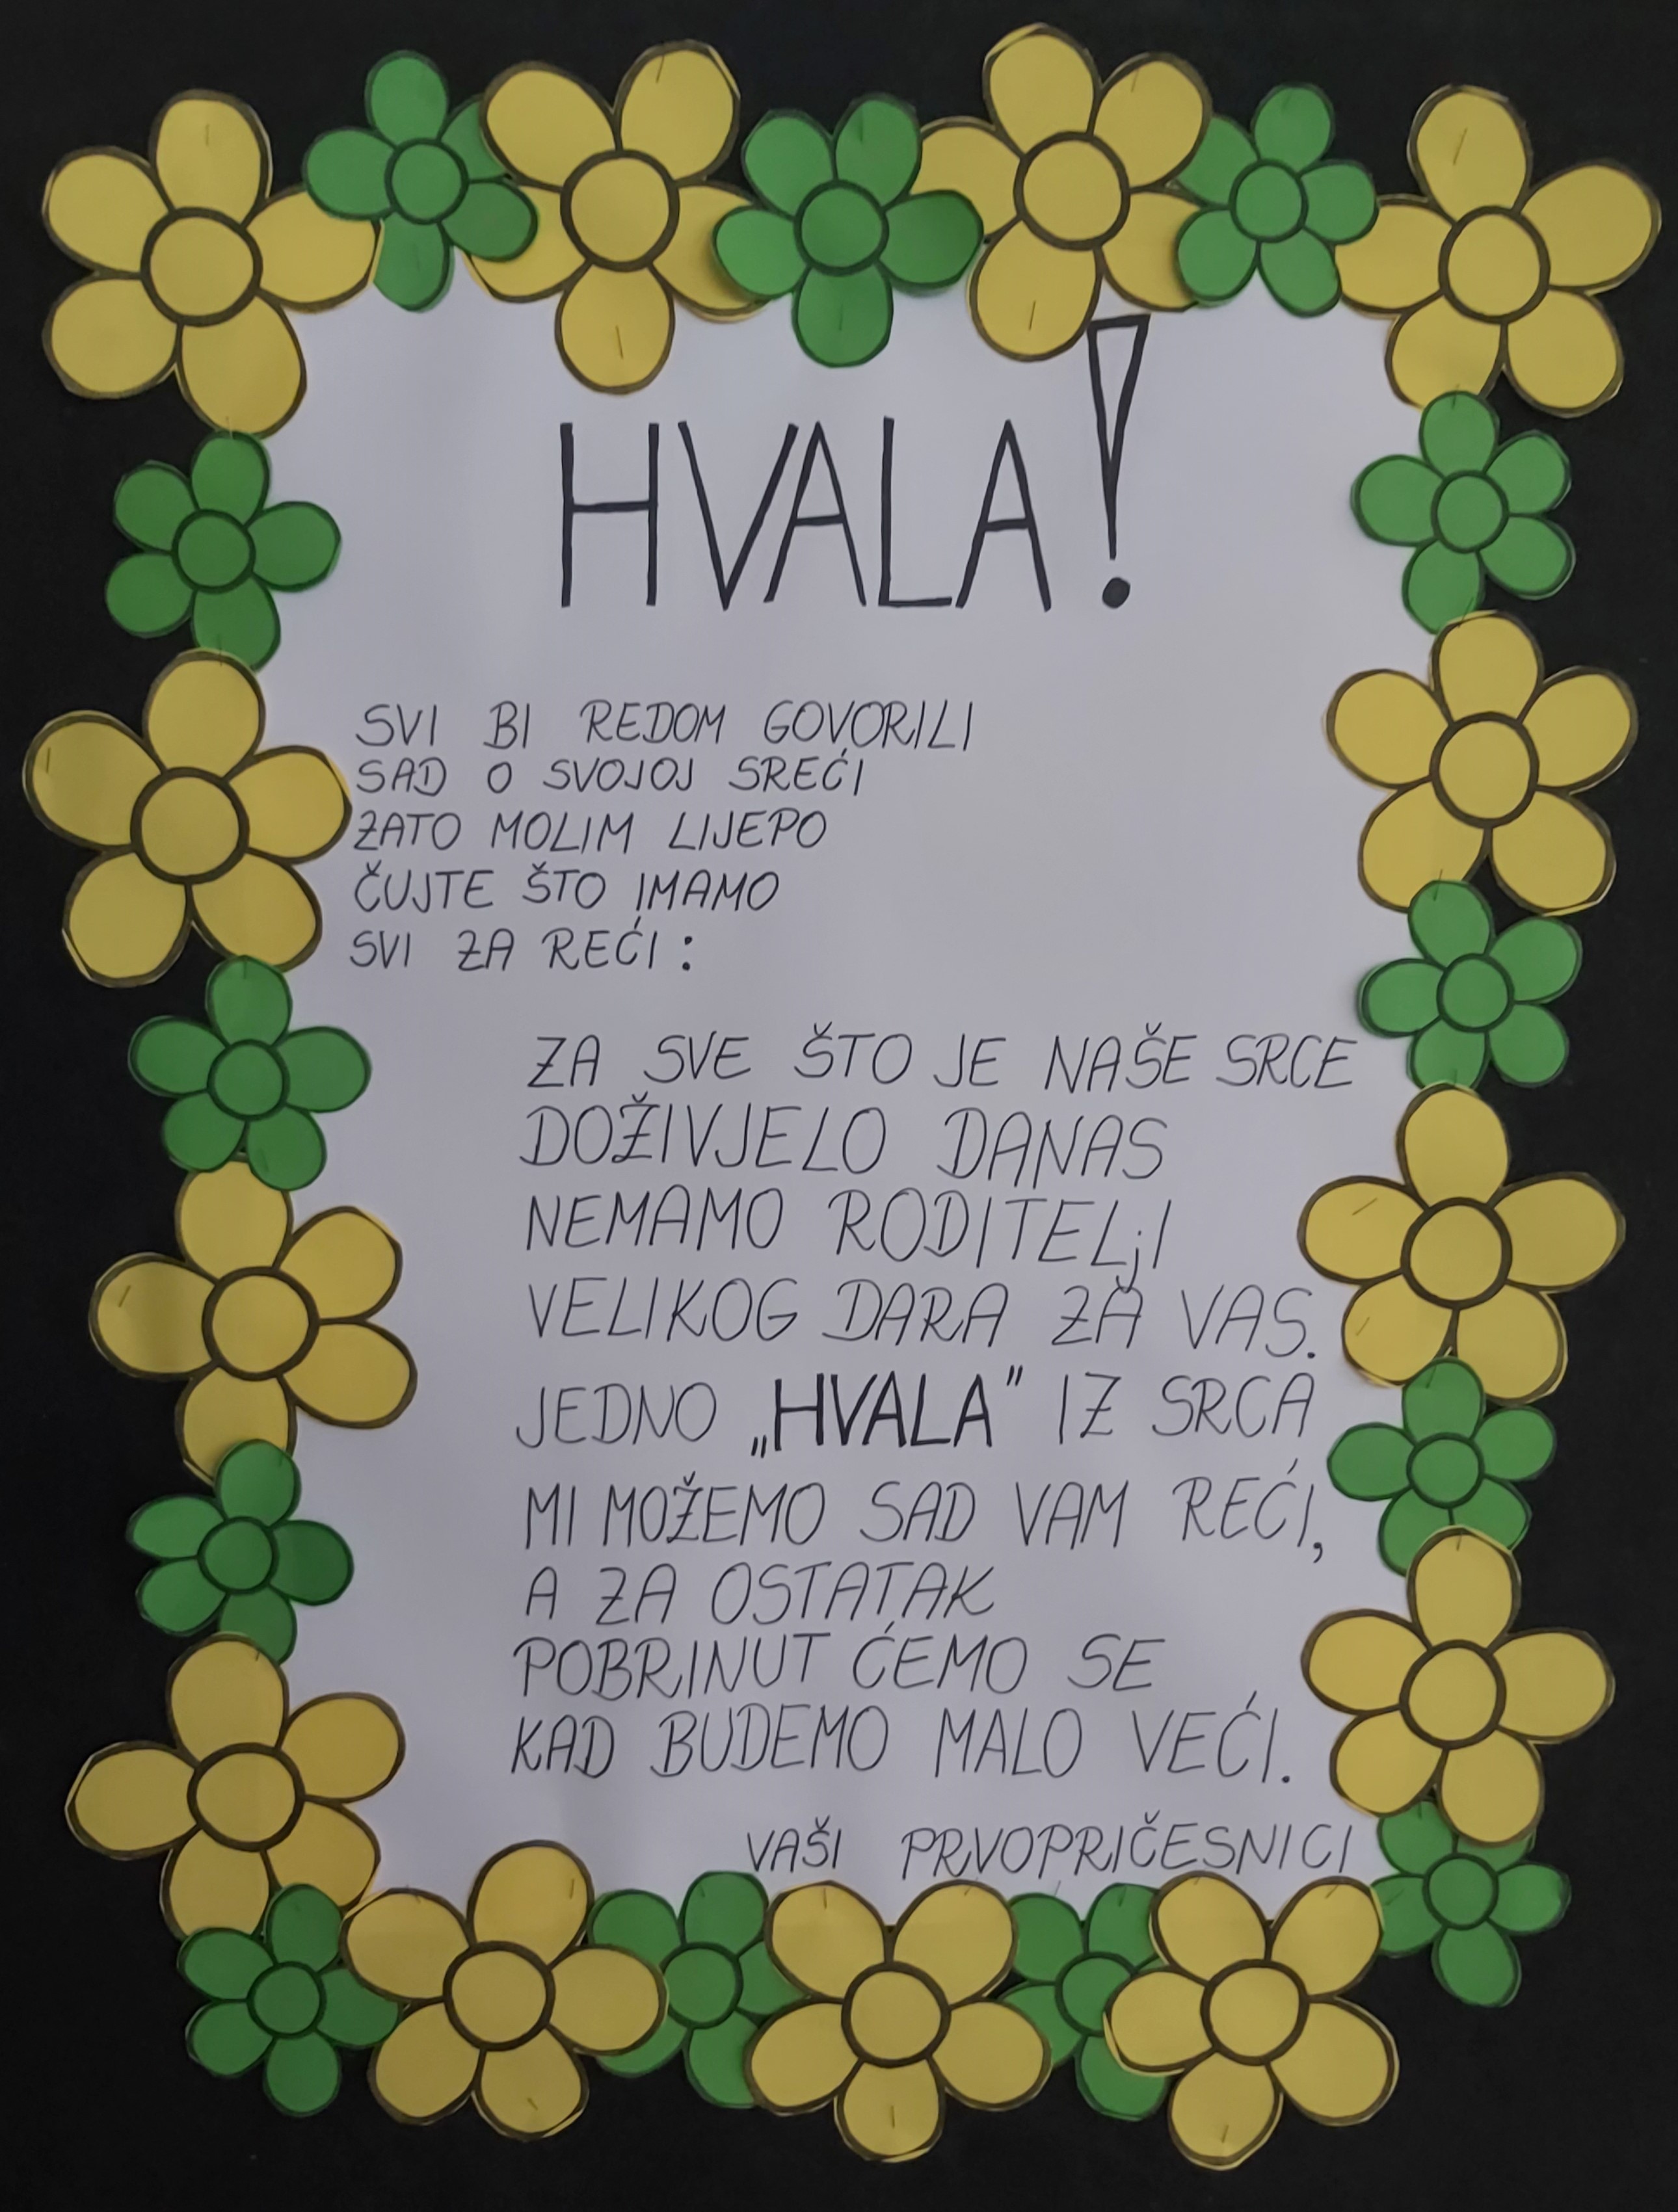 HVALA!
SVI BI REDOM GOVORILI
SAD O SVOJOJ SREĆI
ZATO MOLIM LIJEPO
ČUJTE ŠTO IMAMO
SVI ZA REĆI:
ZA SVE ŠTO JE NAŠE SRCE
DOŽIVJELO DANAS
NEMAMO RODITELjI
VELIKOG DARA ZA VAS.
JEDNO „HVALA" IZ SRCA
MI MOŽEMO SAD VAM REĆI,
A ZA OSTATAK
POBRINUT ĆEMO SE
KAD BUDEMO MALO VEĆI.
VAŠI PRVOPRIČESNICI